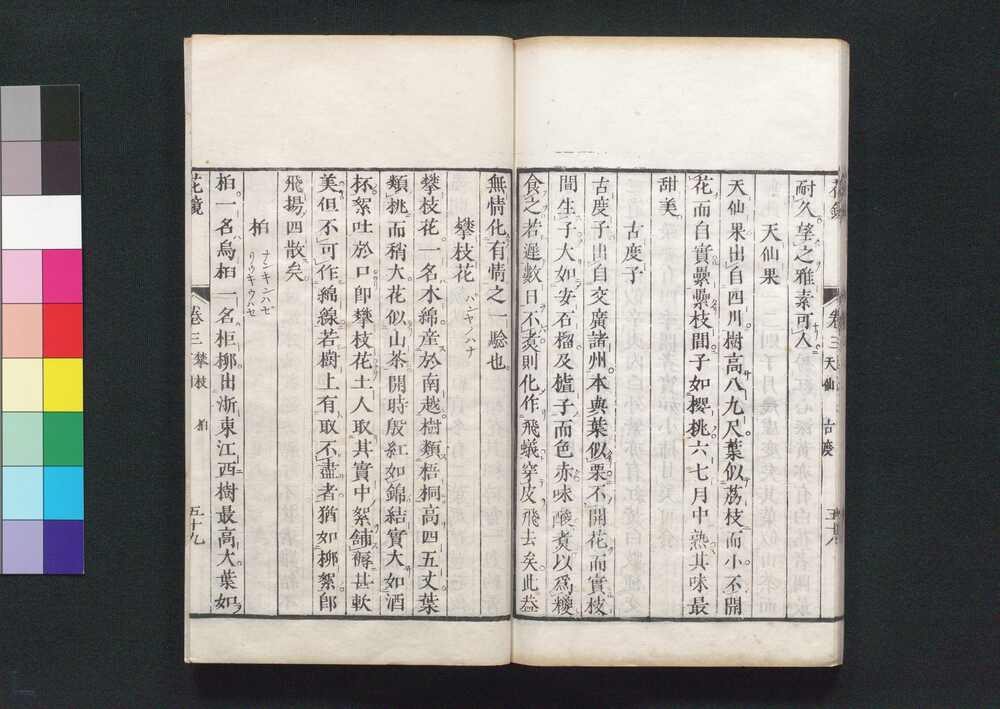 耐久望之雅素可人
天仙果
天仙果出自四川樹高八九尺葉似荔枝而小不開
花而自實纍纍枝間子如櫻桃六七月中熟其味最
甜美
古度子
古度子出自交廣諸州本與葉似栗不開花而實枝
間生子大如安石榴及樝子而色赤味酸煮以爲糭
食之若遲數日不煮則化作飛蟻穿皮飛去矣此葢
花鏡
卷三 天仙 古度
五十八
無情化有情之一驗也
攀枝花 パンヤノハナ
攀枝花一名木綿產於南越樹類梧桐高四五丈葉
類桃而稍大花似山茶開時殷紅如錦結實大如酒
杯絮吐於口卽攀枝花土人取其實中絮鋪褥甚軟
美但不可作綿線若樹上有取不盡者猶如柳絮卽
飛揚四散矣
桕 ナンキンハゼ
リウキウハゼ
桕一名烏桕一名柜桺出浙東江西樹最高大葉如
花鏡
卷三 攀枝 桕
五十九